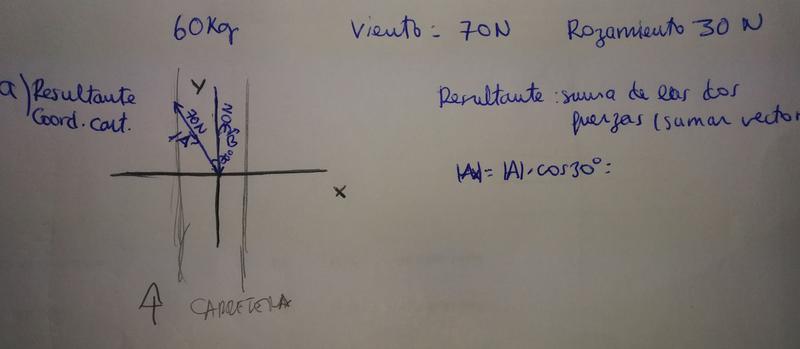 60Kg
Viento = 70N
Rozamiento 30 N
a) Resultante
Coord. cart.
y
70N
|A|
30N
30º
x
CARRETERA
Resultante: suma de las dos
fuerzas (sumar vector
|A| · cos30º =